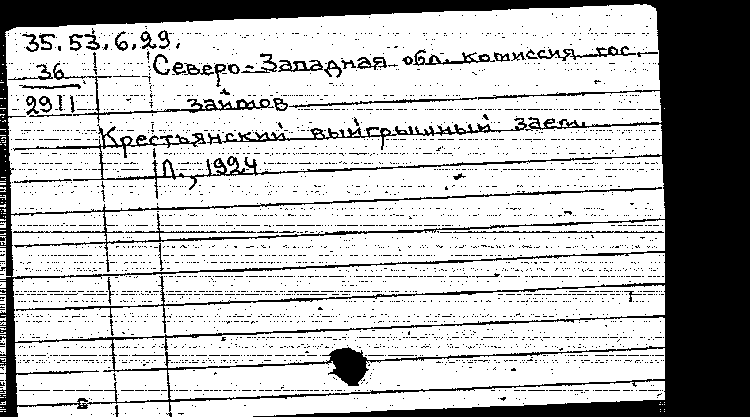 35.53.6.29.
36
2911
Северо-Западная обл. комиссия гос.
займов
Крестьянский выигрышный заем.
Л., 1924